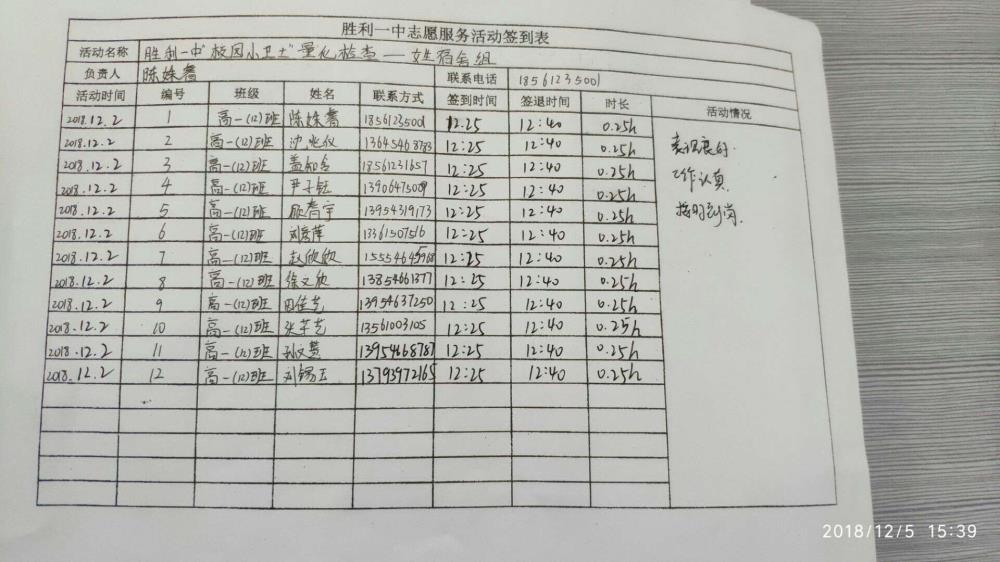 胜利一中志愿服务活动签到表
活动名称 胜利一中"校园小卫士"量化检查——女宿舍组
负责人 陈姝 联系电话 18561235001
活动时间 编号 班级 姓名 联系方式 签到时间 签退时间 时长 活动情况
2018.12.2 1 高一(12)班 陈姝 18561235001 12.25 12:40 0.25h
2018.12.2 2 高一(12)班 13645468783 12:25 12:40 0.25h 表现良好.
2018.12.2 3 高一(12)班 18561231657 12:25 12:40 0.25h
2018.12.2 4 高一(12)班 尹子钰 13906475009 12:25 12:40 0.25h 工作认真
2018.12.2 5 高一(12)班 13954319173 12:25 12:40 0.25h 按时到岗.
2018.12.2 6 高一(12)班 刘彦萍 13361507516 12:25 12:40 0.25h
2018.12.2 7 高一(12)班 赵欣欣 12:25 12:40 0.25h
2018.12.2 8 高一(12)班 徐文欣 13854661377 12:25 12:40 0.25h
2018.12.2 9 高一(12)班 田佳艺 13954637250 12:25 12:40 0.25h
2018.12.2 10 高一(12)班 张芊艺 13561003105 12:25 12:40 0.25h
2018.12.2 11 高一(12)班 孙文慧 13954668787 12:25 12:40 0.25h
2018.12.2 12 高一(12)班 刘锡玉 13793972165 12:25 12:40 0.25h
2018/12/5 15:39